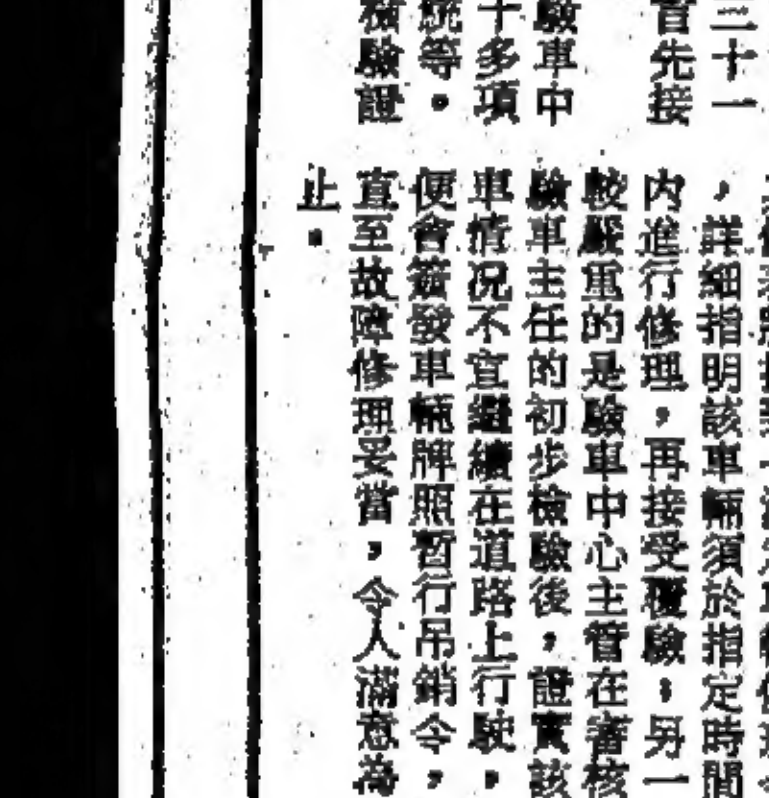 三十一
首先接
驗車中
十多項
統等。
檢驗證
，詳細指明該車輛須於指定時間
內進行修理，再接受覆驗，另一
較嚴重的是驗車中心主管在審核
驗車主任的初步檢驗後，證實該
車情況不宜繼續在道路上行駛，
便會簽發車輛牌照暫行吊銷令，
直至故障修理妥當，令人滿意為
止。